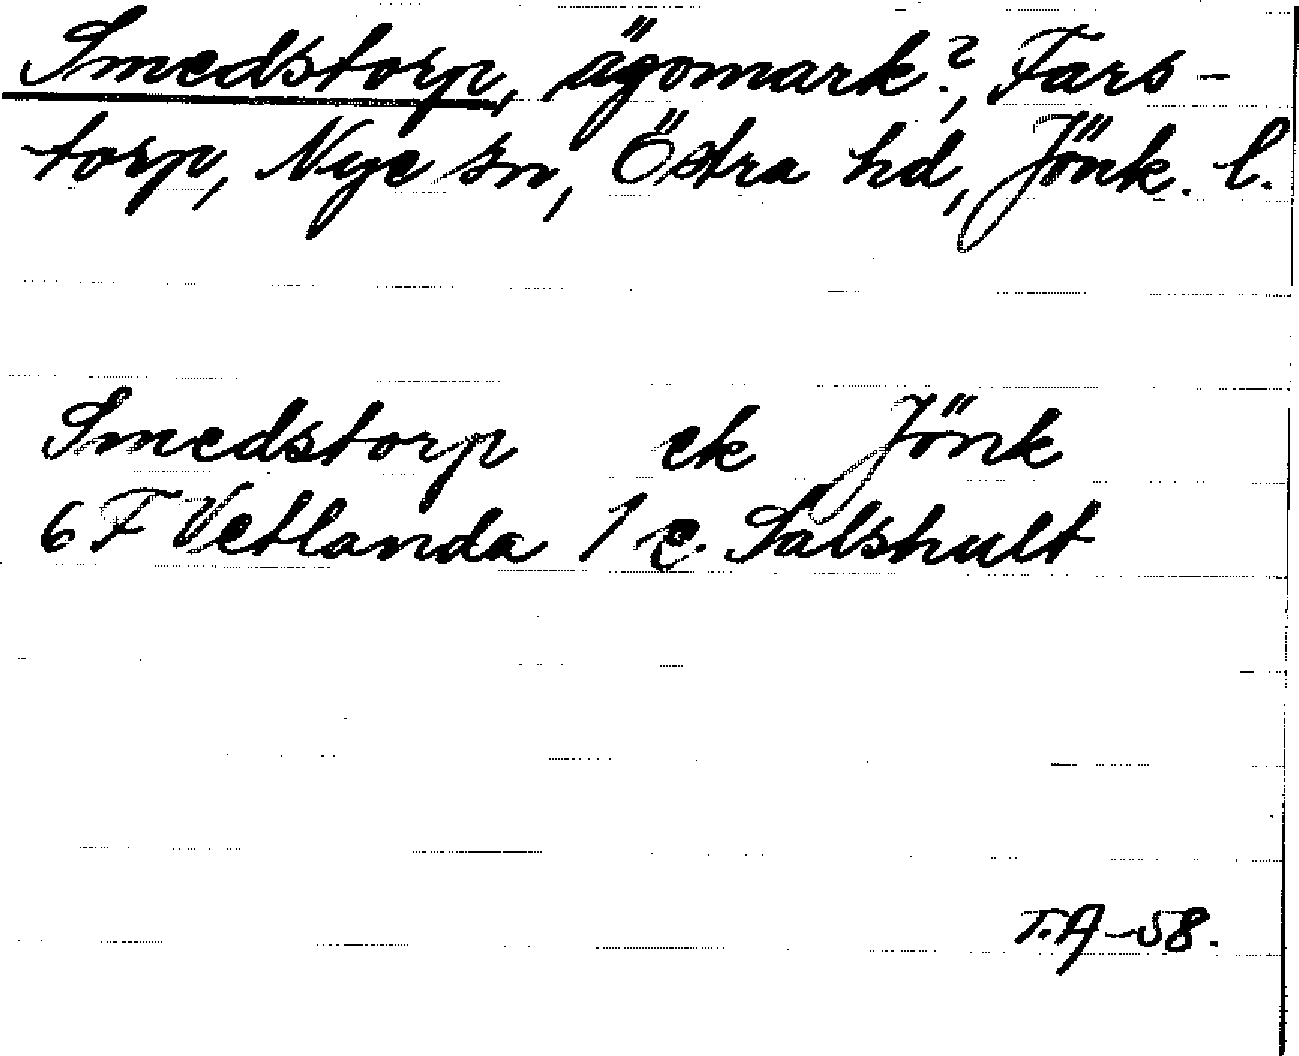 Smedstorp, ägomark?, Fars-
torp, Nye sn, Östra hd, Jönk. l.
Smedstorp ek Jönk
6 F Vetlanda 1 c. Salshult
T.A-58.